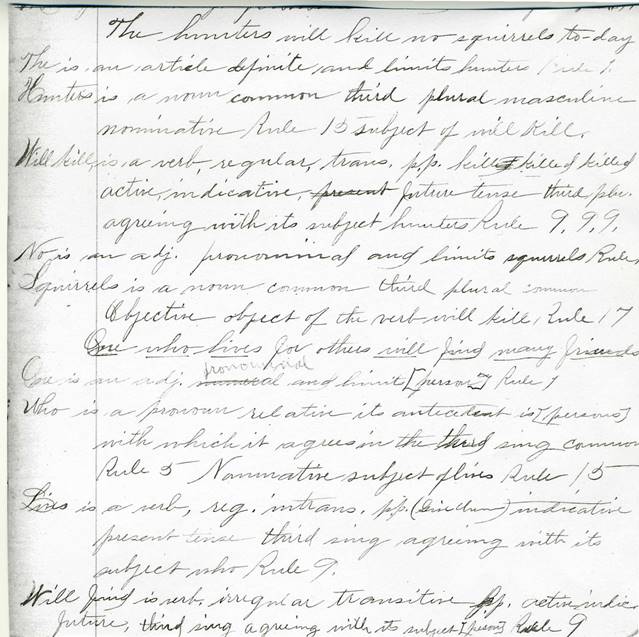 The hunters will kill no squirrels to-day
The is an article definite and limits hunters Rule 1.
Hunters is a noun common third plural masculine
nominative Rule 15 subject of will kill.
Will kill, is a verb, regular, trans, p.p. kill killed killed
active, indicative, present future tense third plu.
agreeing with its subject hunters Rule 9, 9, 9,
No is an adj. pronominal and limits squirrels Rule
Squirrels is a noun common third plural common
Objective object of the verb will kill, Rule 17
One who lives for others will find many friends
pronominal
One is an adj. and limits [person] Rule 1
Who is a pronoun relative its antecedent is [persons]
with which it agrees in the third sing common
Rule 5 Nominative subject of lives Rule 15
Lives is a verb, reg. intrans. p.p. indicative
present tense third sing agreeing with its
subject who Rule 9.
Will find is verb, irregular transitive p.p. active indic
future, third sing agreeing with its subject [person] Rule 9